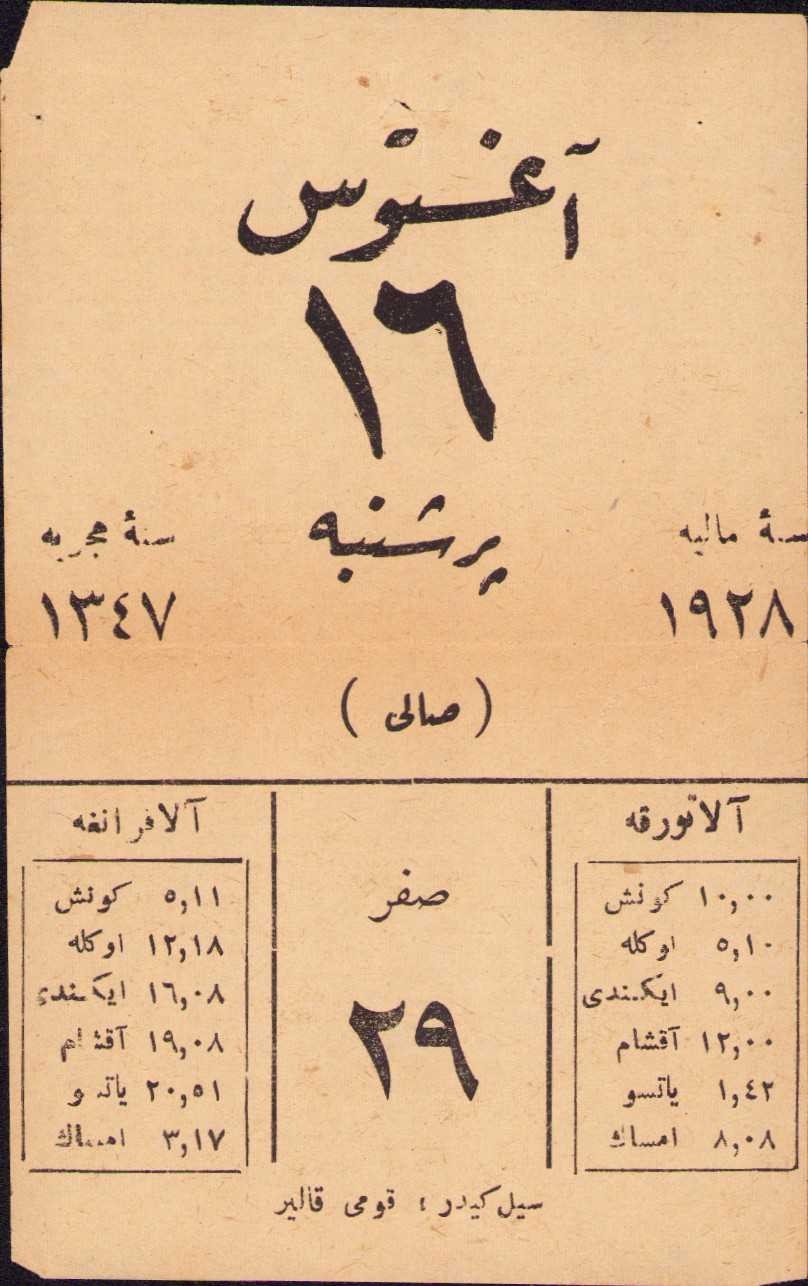 آغستوس
١٦
پرشنبه
سنهٔ مالیه
١٩٢٨
سنهٔ هجریه
١٣٤٧
( صالی )
آلاتورقه
١٠,٠٠ کونش
٥,١٠ اوکله
٩,٠٠ ایکندی
١٢,٠٠ آقشام
١,٤٢ یاتسو
٨,٠٨ امساك
صفر
٢٩
آلافرانغه
٥,١١ کونش
١٢,١٨ اوکله
١٦,٠٨ ایکندی
١٩,٠٨ آقشام
٢٠,٥١ یاتسو
٣,١٧ امساك
سیل کیدر ؛ قومی قالیر